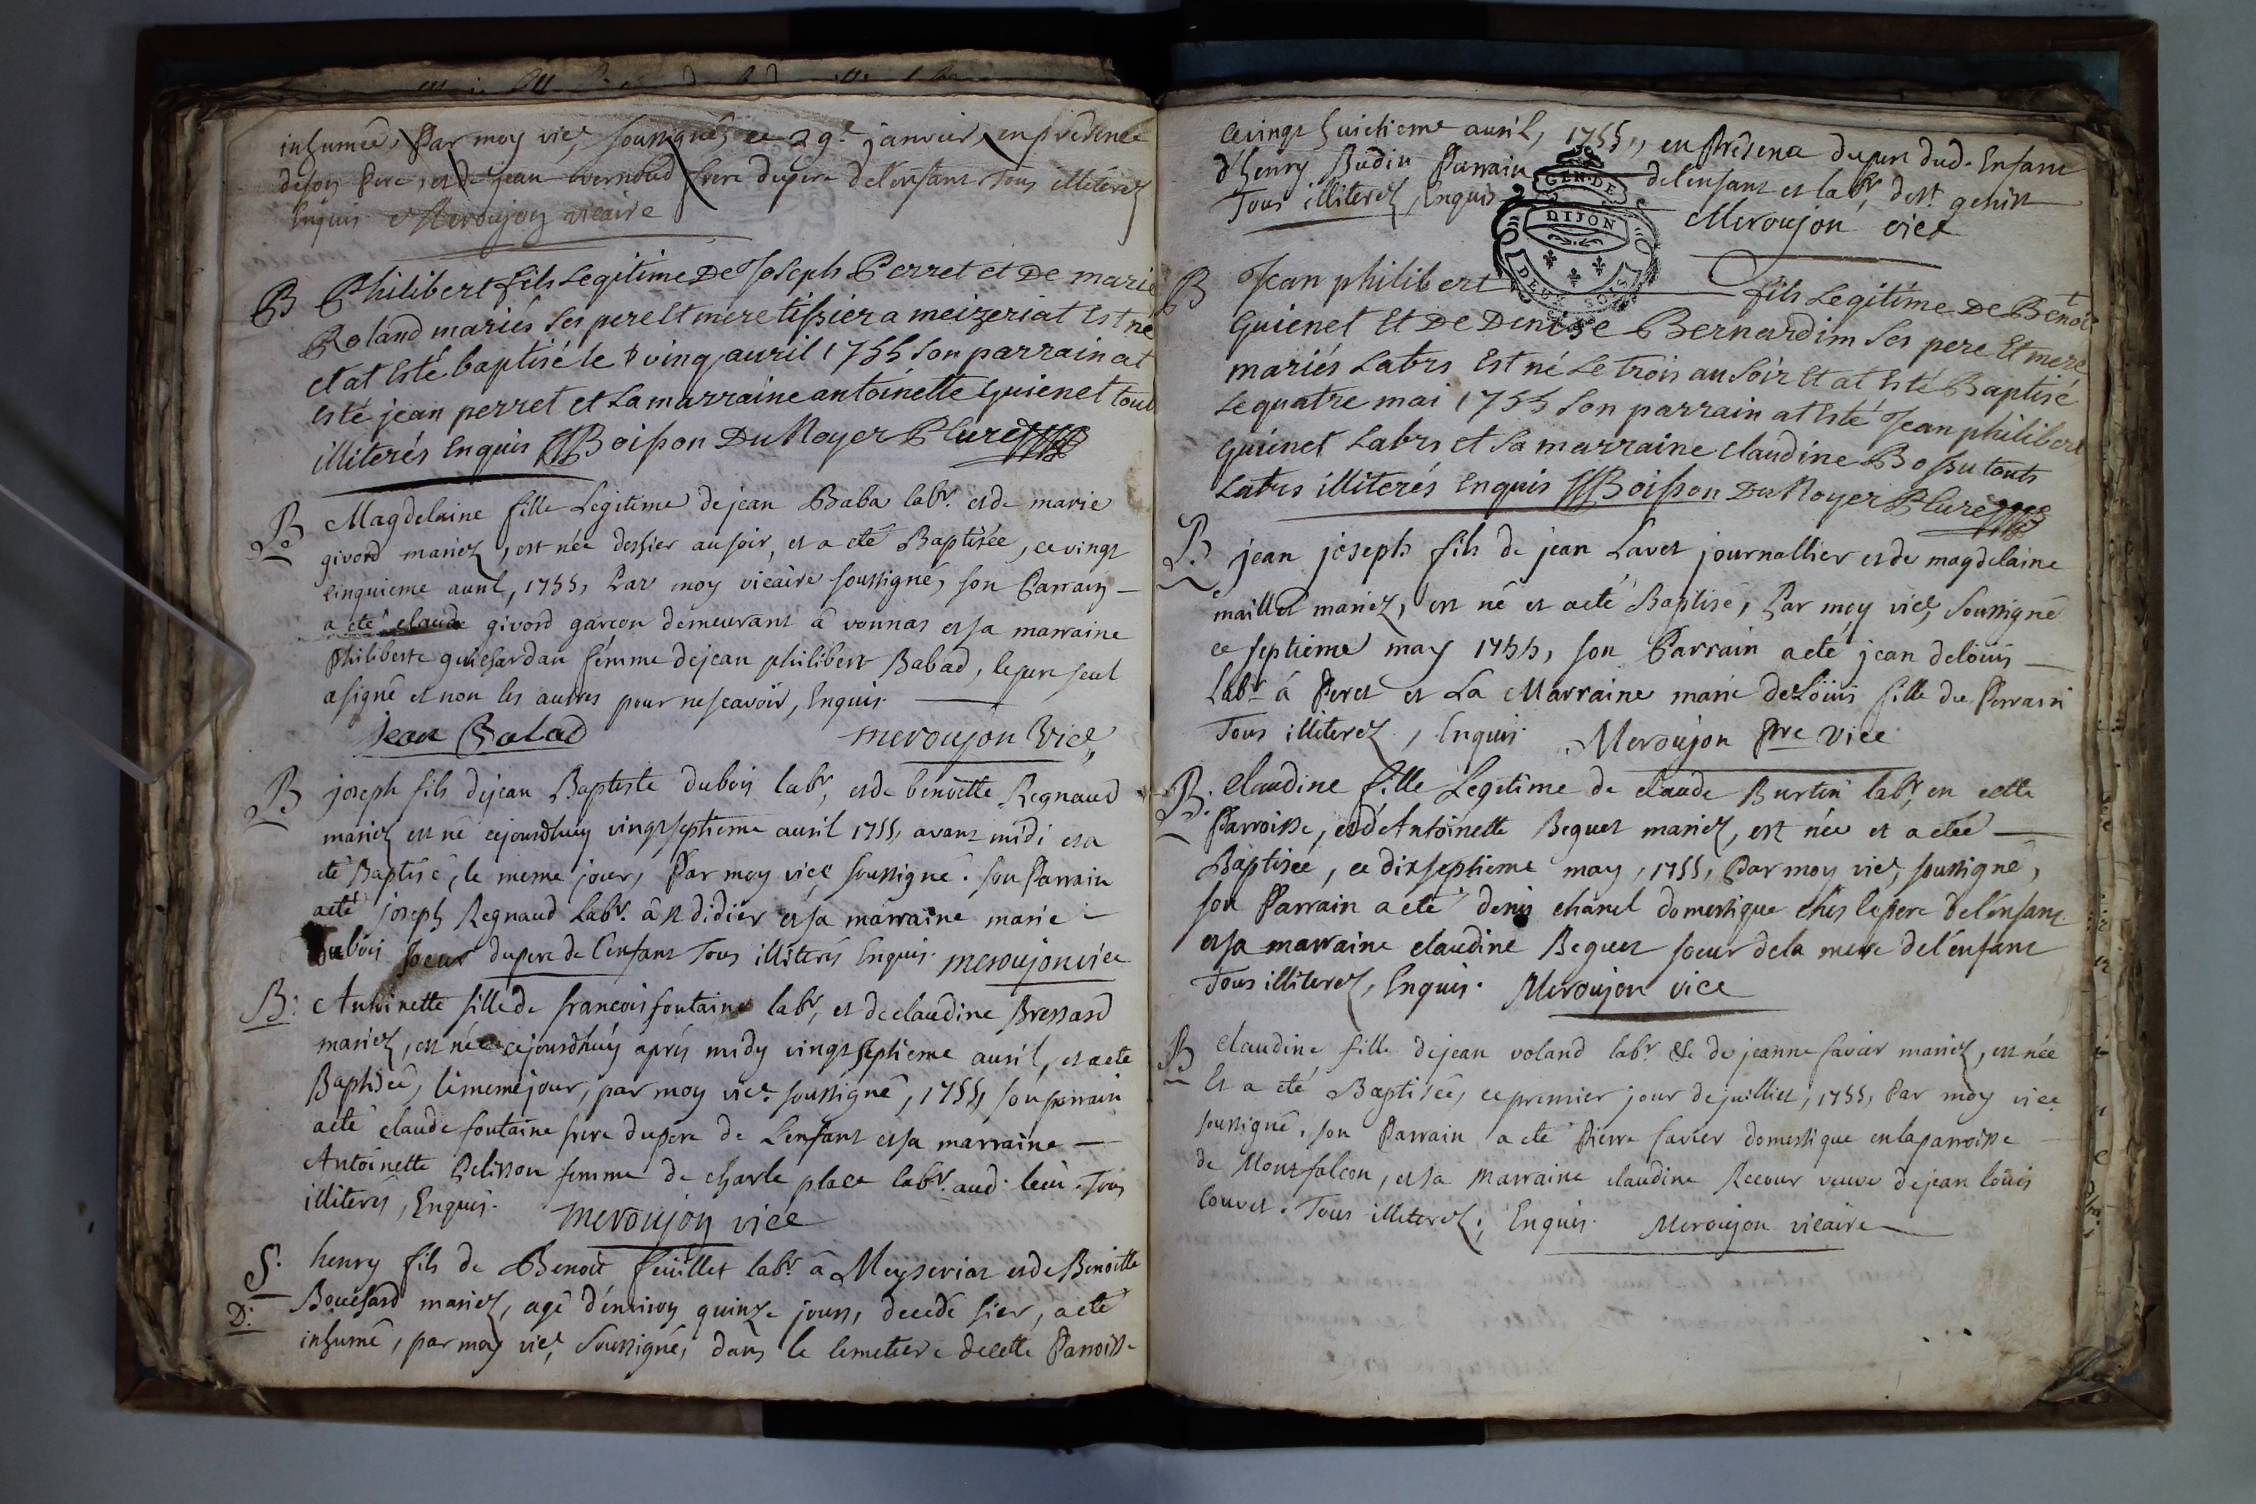 inhumée, Par moy vic.e soussigné, ce 29.e janvier, en presence
de son Pere, et de jean frere du pere de l'enfant Tous illiterez
Enquis. Meroujon vicaire
B Philibert fils Legitime De Joseph Perret et De marie
Roland mariés ses pere Et mere tissier a meizeriat Est né
et at Esté baptisé le ving avril 1755 son parrain at
Esté jean perret et La marraine antoinette Guienet tout
illiterés Enquis Boisson Du Noyer Curé
B Magdelaine fille Legitime de jean Baba lab.r et de marie
givord mariez, est née des hier au soir, et a eté Baptisée, ce vingt
cinquieme avril, 1755, Par moy vicaire soussigné, son Parrain
a eté claude givord garcon demeurant à vonnas et sa marraine
Philiberte guichardan femme de jean philibert Babad, le pere seul
a signé et non les autres pour ne scavoir, Enquis.
Jean Babad meroujon Vice
B joseph fils de jean Baptiste dubois lab.r, et de benoitte Regnaud
mariez est né cejourdhuy vingt septieme avril 1755, avant midi et a
eté Baptisé, le meme jour, Par moy vice soussigné. son Parrain
a eté joseph Regnaud Lab.r à st didier et sa marraine marie
dubois soeur du pere de l'enfant Tous illiterés Enquis. meroujon vice
B: Antoinette fille de francois fontaine lab.r, et de claudine Bressard
mariez, est née cejourdhuy aprés midy vingt septieme avril, et a eté
Baptisée, le meme jour, par moy vic.e soussigné, 1755, son parrain
a eté claude fontaine frere du pere de L'enfant et sa marraine
Antoinette Pelisson femme de charle place lab.r aud. lieu. Tous
illiterés, Enquis. meroujon vice
S. henry fils de Benoit feüillet lab.r à Meyseriat et de Benoitte
D: Bouchard mariez, agé d'environ quinze jours, decedé hier, a eté
inhumé, par moy vic.e soussigné, dans le Cemetiere de cette Paroisse
ce vingt huictieme avril, 1755, en Presence du pere dud. Enfant
d'henry Budin Parrain de l'enfant et lab.r de st. genist
Tous illiterez, Enquis Meroujon vice
GEN. DE
DIJON
DEUX SOLS
B Jean philibert fils Legitime De Benoit
Guienet Et De Denise Bernardim ses pere Et mere
mariés Labrs Est né Le trois au soir Et at Esté Baptisé
Le quatre mai 1755 son parrain at Esté Jean philibert
Guienet Labrs et sa marraine claudine Bossu touts
Labrs illiterés Enquis Boisson Du Noyer Curé
B. jean joseph fils de jean Lavet journallier et de magdelaine
maillet mariez, est né et a eté Baptisé, Par moy vic.e soussigné
ce septieme may 1755, son Parrain a eté jean delouis
lab.r à Peret et La Marraine marie deLoüis fille du Parrain
Tous illiterez, Enquis. Meroujon Pre Vice
B. Claudine fille Legitime de claude Burtin lab.r en cette
Parroisse, et d'Antoinette Beguet mariez, est née et a eté
Baptisée, ce dix septieme may, 1755, Par moy vic.e soussigné,
son Parrain a eté denis chanel domestique chés le pere de l'enfant
et sa marraine claudine Beguet soeur de la mere de l'enfant
Tous illiterez, Enquis. Meroujon vice
B Claudine fille de jean voland lab.r & de jeanne favier mariez, est née
Et a eté Baptisée, ce premier jour de juilliet, 1755, Par moy vice
soussigné. son Parrain a eté Pierre favier domestique en la parroisse
de Montfalcon, et sa Marraine claudine Recour veuve de jean loüis
Couvet. Tous illiterez, Enquis. Meroujon vicaire